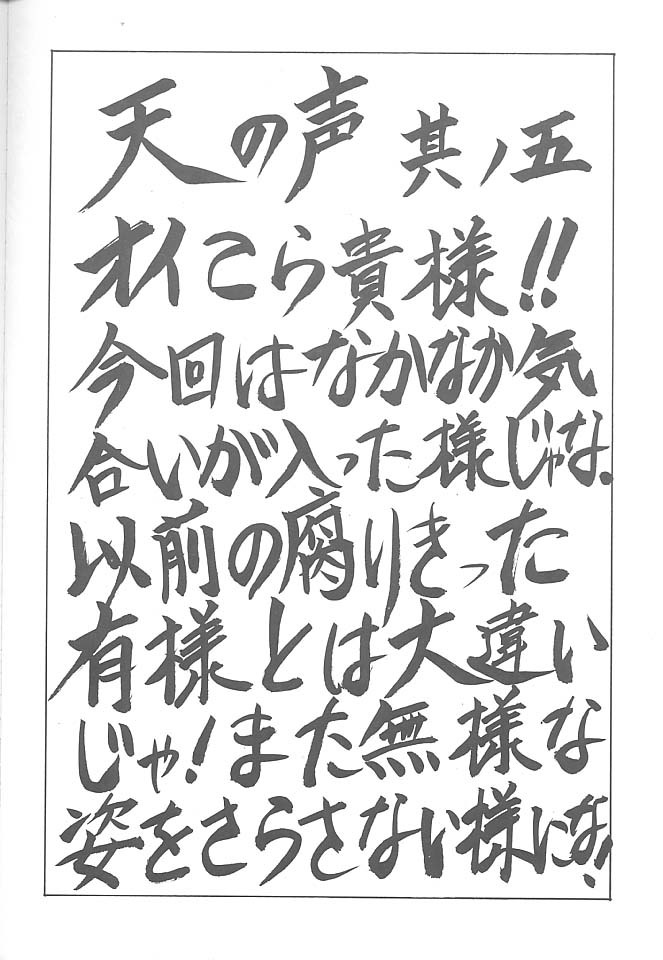 天の声 其ノ五
オイこら貴様!!
今回はなかなか気
合いが入った様じゃな.
以前の腐りきった
有様とは大違い
じゃ!また無様な
姿をさらさない様にな!